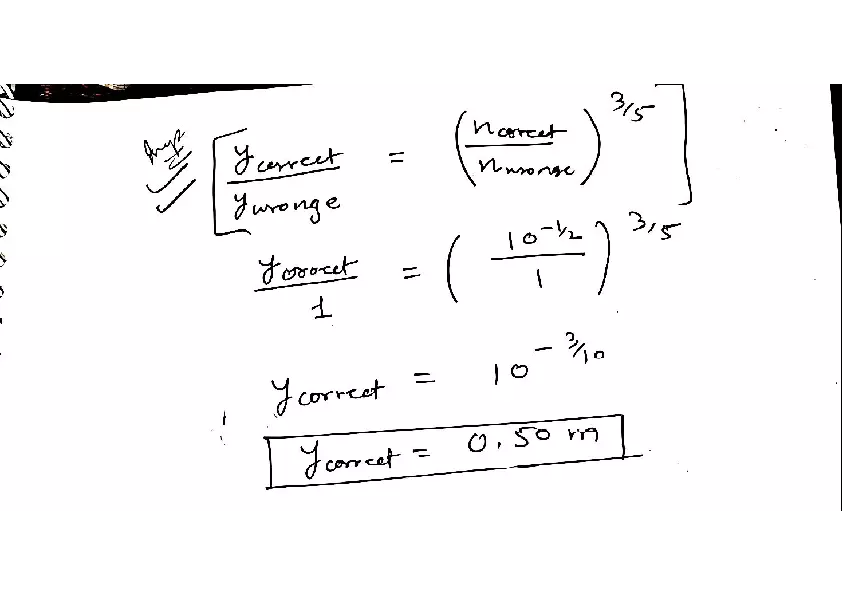 Imp
y correct / y wronge = (n correct / n wronge)^3/5
y correct / 1 = (10^-1/2 / 1)^3/5
y correct = 10^-3/10
y correct = 0.50 m